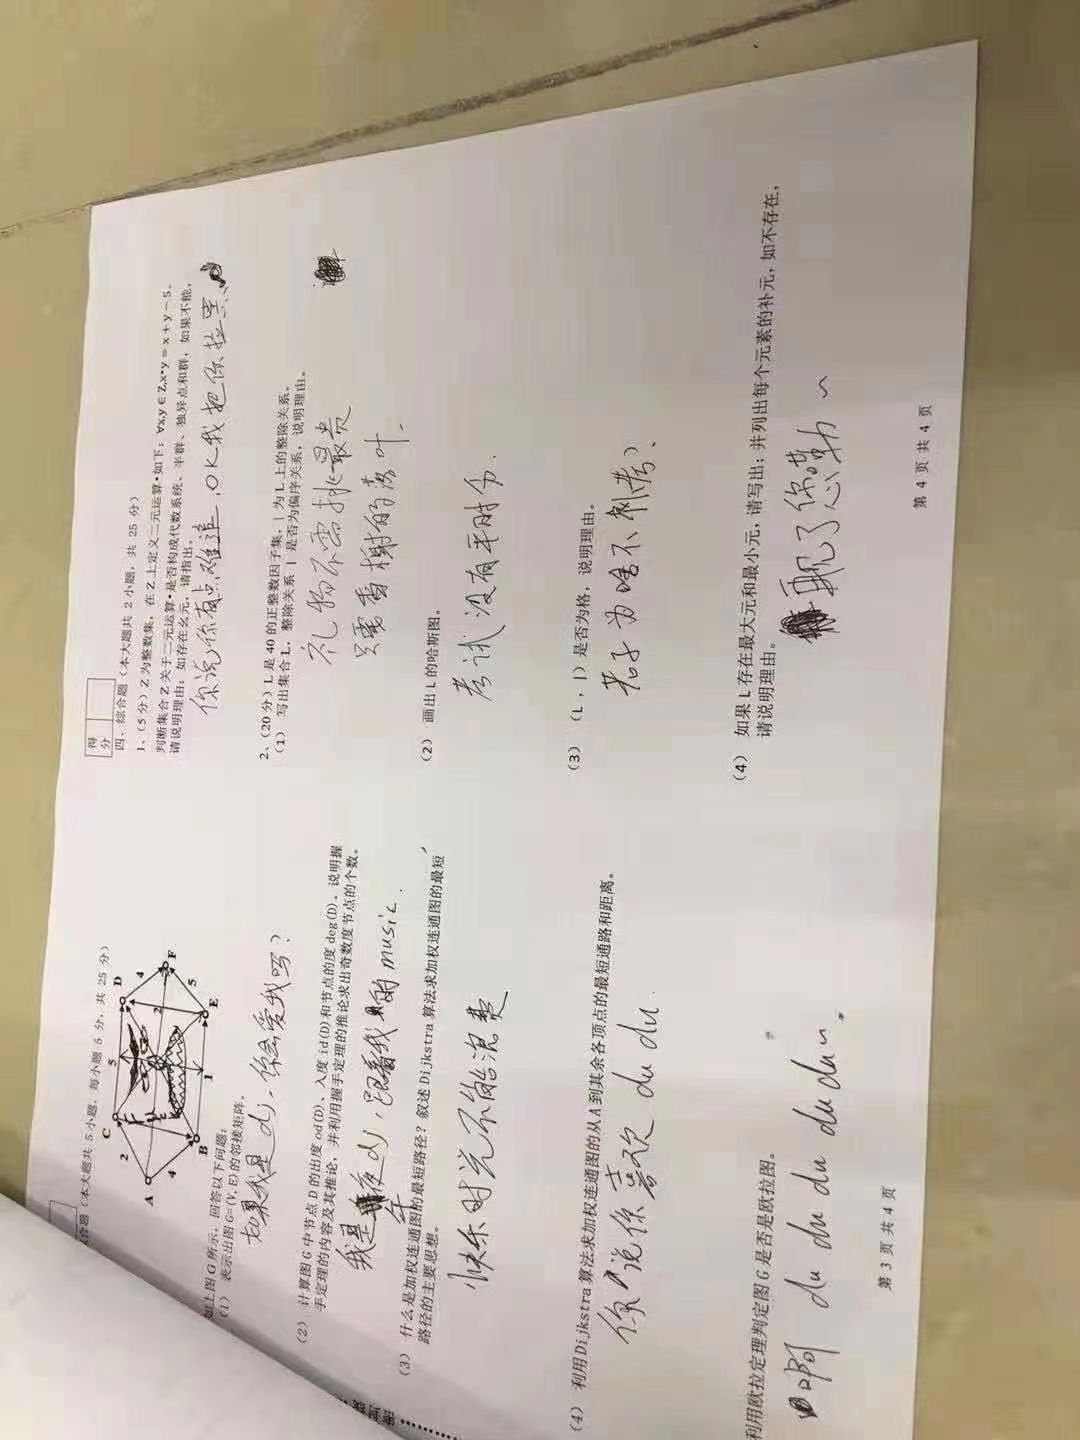 合题（本大题共 5 小题，每小题 5 分，共 25 分）
A
B
C
D
E
F
2
4
5
4
2
5
1
如上图 G 所示，回答以下问题：
（1） 表示出图 G=(V, E) 的邻接矩阵。
如果我是 dj，你会爱我吗？
（2） 计算图 G 中节点 D 的出度 od(D)、入度 id(D)和节点的度 deg(D)。说明握
手定理的内容及其推论，并利用握手定理的推论求出奇数度节点的个数。
我是年夜 dj，跟着我的 music.
（3） 什么是加权连通图的最短路径？叙述 Dijkstra 算法求加权连通图的最短
路径的主要思想。
快乐时光不能浪费
（4） 利用 Dijkstra 算法求加权连通图的从 A 到其余各顶点的最短通路和距离。
你说你喜欢 du du.
利用欧拉定理判定图 G 是否是欧拉图。
啊 du du du du du~.
第 3 页 共 4 页
得
分
四、综合题（本大题共 2 小题，共 25 分）
1、（5 分）Z 为整数集，在 Z 上定义二元运算•如下：∀x,y∈Z,x•y = x + y − 5。
判断集合 Z 关于二元运算•是否构成代数系统、半群、独异点和群，如果不能，
请说明理由；如存在幺元，请指出。
你说你有点难追，OK我把你拉黑
2、（20 分）L 是 40 的正整数因子集，| 为 L 上的整除关系。
（1） 写出集合 L，整除关系 | 是否为偏序关系，说明理由。
礼物不需挑最贵
只需香榭的落叶.
（2） 画出 L 的哈斯图。
考试没有平时分.
（3） （L，|）是否为格，说明理由。
老子为啥不补考？
（4） 如果 L 存在最大元和最小元，请写出；并列出每个元素的补元，如不存在，
请说明理由。
了您嘞~
第 4 页 共 4 页